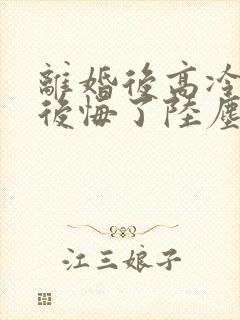 離婚後高冷
後悔了陸塵
江三娘子